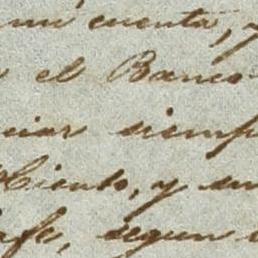 mi cuenta, y
el Banco
ciar siemp
Ciento, y su
afe, segun